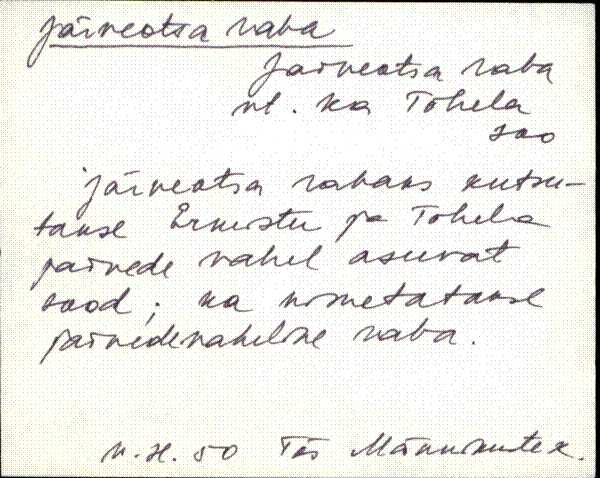 Järveotsa raba
Järveotsa raba
vt. ka Tõhela
soo
Järveotsa rabaks kutsu-
takse Ermistu ja Tõhela
järvede vahel asuvat
sood; ka nimetatakse
järvedevaheline raba.
50 Tõs Männikuste k.